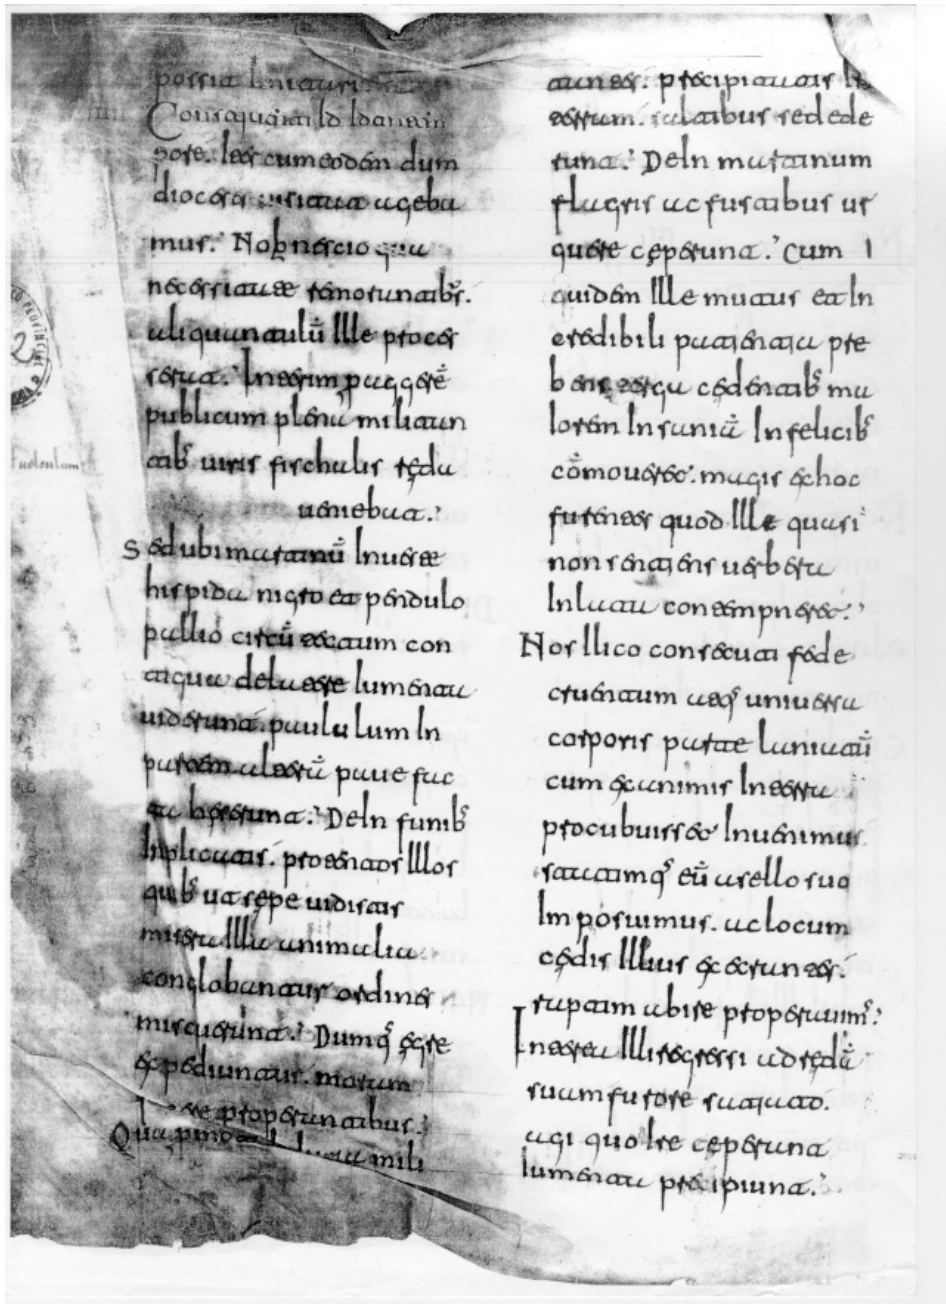 sore. Iter cum eodem dum
dioceses uisitat agebа
mus. Nob nescio qua
necessitate remorantibs.
aliquantulū ille proces
serat. Interim p aggerē
publicum plena militan
tibs uiris fischalis reda
ueniebat.
Sed ubi martinū in ueste
hispida nigro et pendulo
pallio circū tectum con
tigua de latere iumenta
uiderunt. paululum in
partem alterā pauefac
ta heserunt. Dein funibs
inplicatis. protentos illos
quibs ut sepe uidistis
misera illa animalia
conglobantur ordines
miscuerunt. Dumq egre
expediuntur. moram
properantibus.
mili
tantes. precipitatis in
terram. saltibus sed ede
runt. Dein martinum
flagris ac fustibus ur
guere ceperunt. Cum
quidem ille mutus et in
credibili patientia pre
bens terga cedentibs ma
iorem insaniā infelicibs
cōmoueret. magis exhoc
furentes quod ille quasi
non sentiens uerbera
inlata contempneret.
Nos ilico consecuti fede
cruentum atq uniuersa
corporis parte laniatū
cum exanimis in terra
procubuisset inuenimus
statimq eū asello suo
imposuimus. ac locum
cedis illius execrantes.
raptim abire properauims.
Interea illi regressi ad redā
suum furore satiato.
agi quo ire ceperunt
iumenta precipiunt.